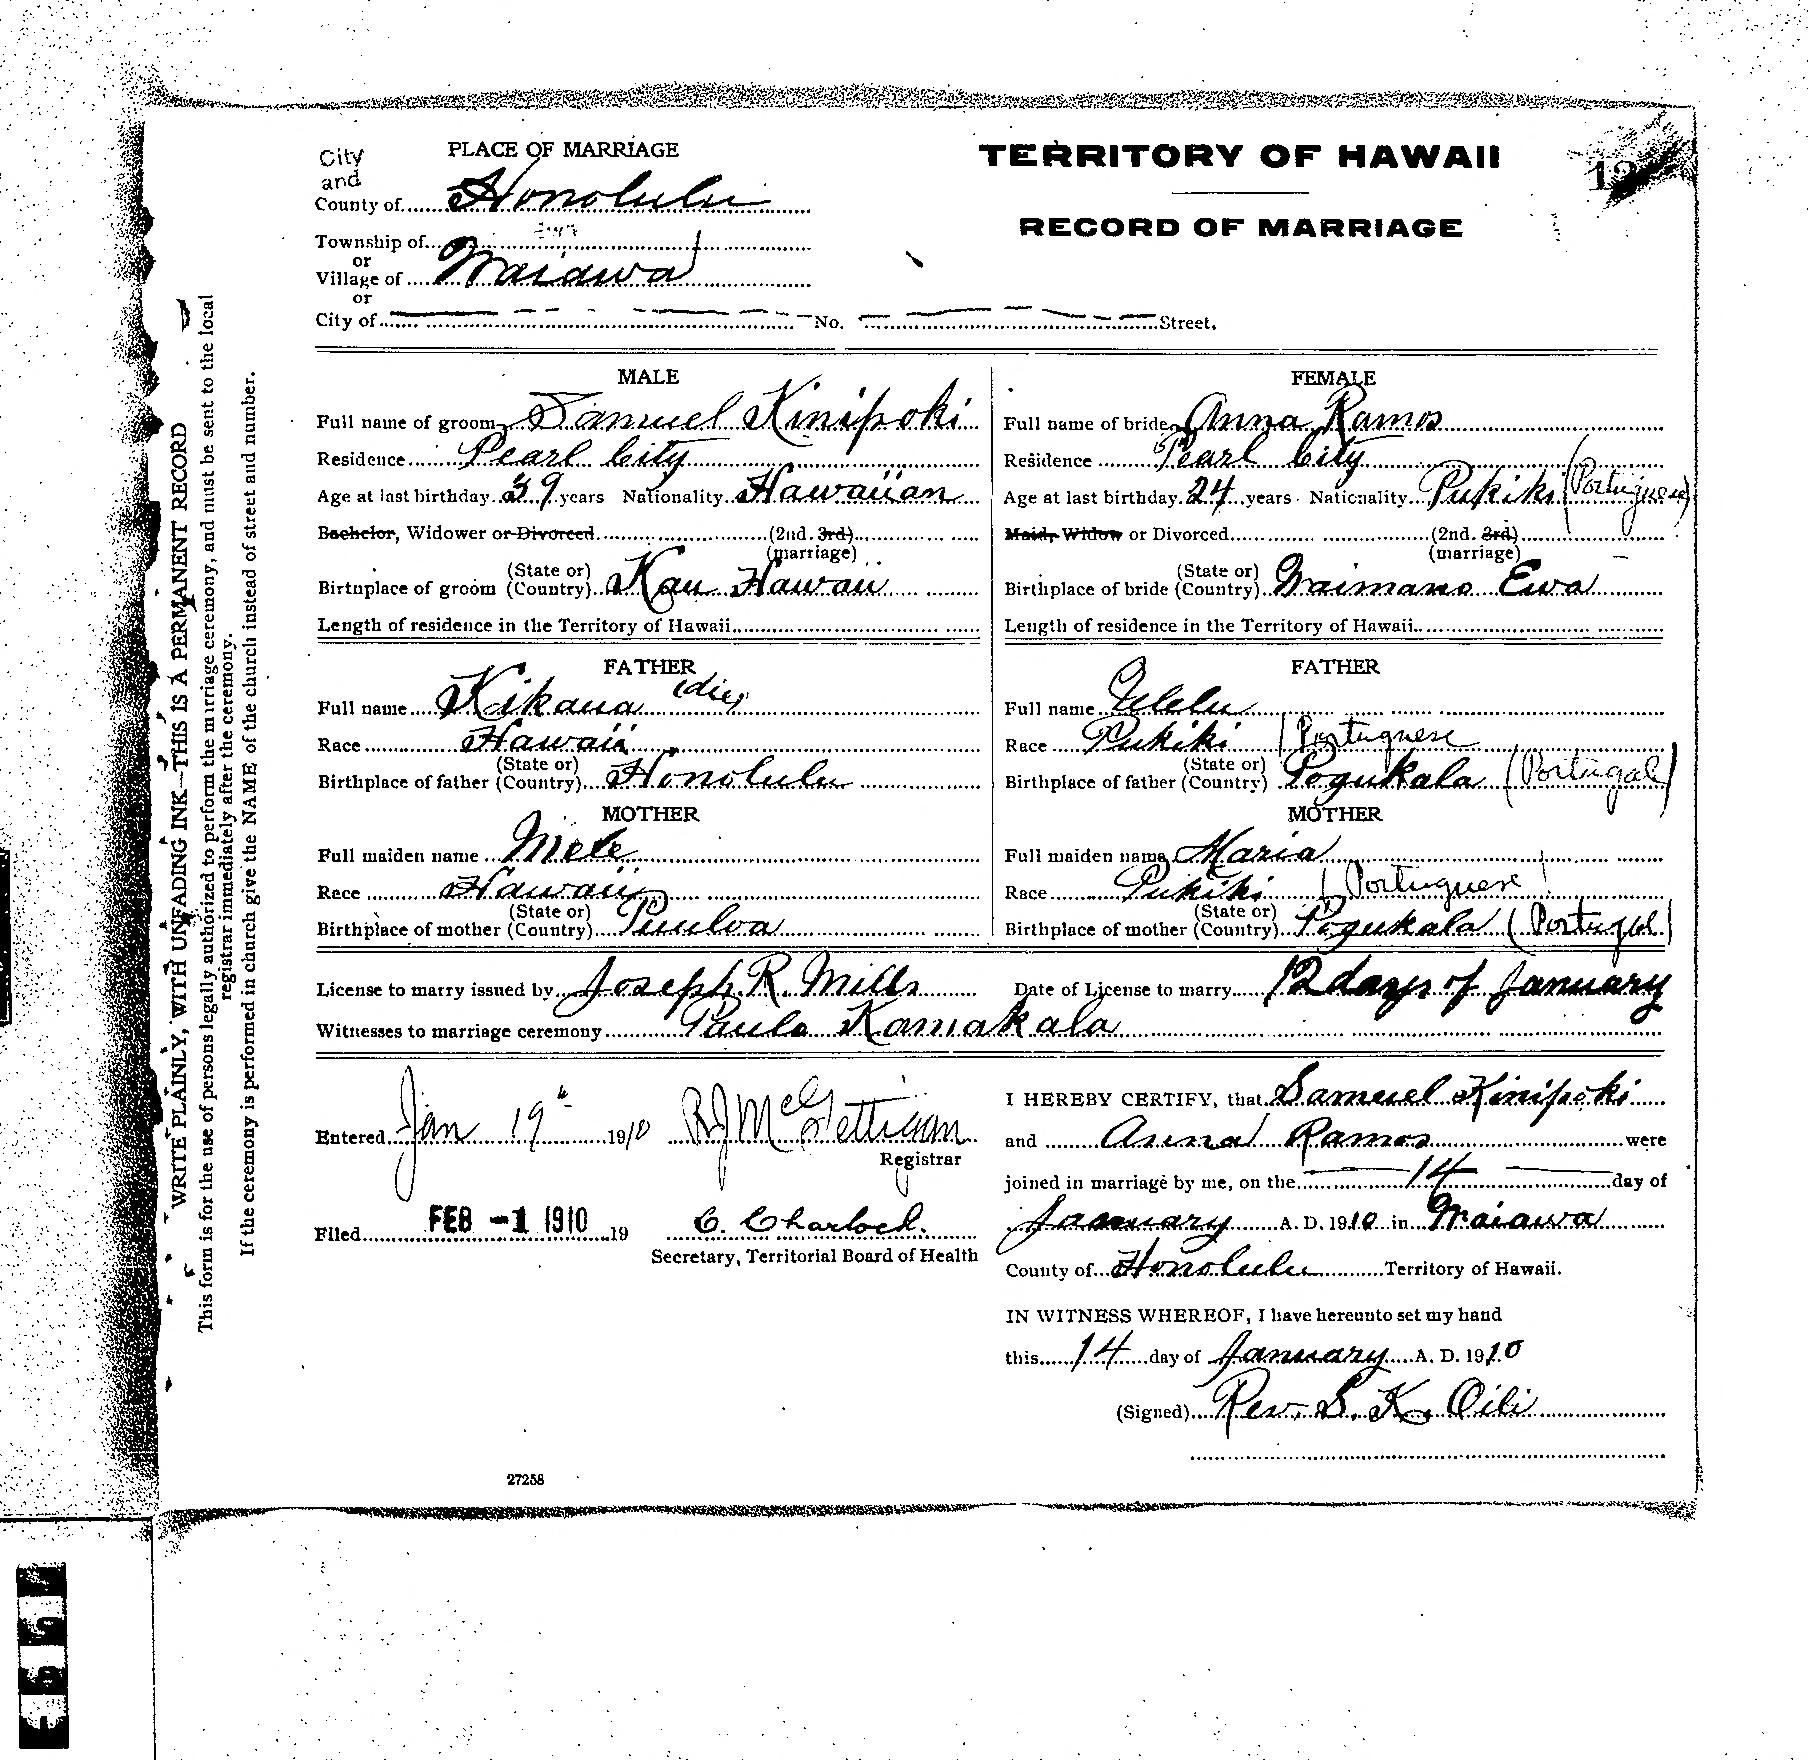 City
and
PLACE OF MARRIAGE
County of Honolulu
Township of
or
Village of Waiawa
or
City of No. Street.
TERRITORY OF HAWAII
RECORD OF MARRIAGE
WRITE PLAINLY, WITH UNFADING INK—THIS IS A PERMANENT RECORD
This form is for the use of persons legally authorized to perform the marriage ceremony, and must be sent to the local
registrar immediately after the ceremony.
If the ceremony is performed in church give the NAME of the church instead of street and number.
MALE
Full name of groom Samuel Kinipoki
Residence Pearl City
Age at last birthday 39 years Nationality Hawaiian
Bachelor, Widower or Divorced (2nd. 3rd)
(marriage)
(State or)
Birthplace of groom (Country) Kau Hawaii
Length of residence in the Territory of Hawaii
FATHER
Full name Kikana (die)
Race Hawaii
(State or)
Birthplace of father (Country) Honolulu
MOTHER
Full maiden name Mele
Race Hawaii
(State or)
Birthplace of mother (Country) Puuloa
FEMALE
Full name of bride Anna Ramos
Residence Pearl City
Age at last birthday 24 years Nationality Pukiki (Portuguese)
Maid, Widow or Divorced (2nd. 3rd)
(marriage)
(State or)
Birthplace of bride (Country) Waimano Ewa
Length of residence in the Territory of Hawaii
FATHER
Full name
Race Pukiki (Portuguese
(State or)
Birthplace of father (Country) Pogukala (Portugal)
MOTHER
Full maiden name Maria
Race Pukiki (Portuguese)
(State or)
Birthplace of mother (Country) Pogukala (Portugal)
License to marry issued by Joseph R. Mills Date of License to marry 12 days of January
Witnesses to marriage ceremony Paulo Kamakala
Entered Jan 19th 1910 R J McGettigan
Registrar
Filed FEB -1 1910 19 C. Charlock.
Secretary, Territorial Board of Health
I HEREBY CERTIFY, that Samuel Kinipoki
and Anna Ramos were
joined in marriage by me, on the 14 day of
January A. D. 1910 in Waiawa
County of Honolulu Territory of Hawaii.
IN WITNESS WHEREOF, I have hereunto set my hand
this 14 day of January A. D. 1910
(Signed) Rev. S. K. Oili
27258